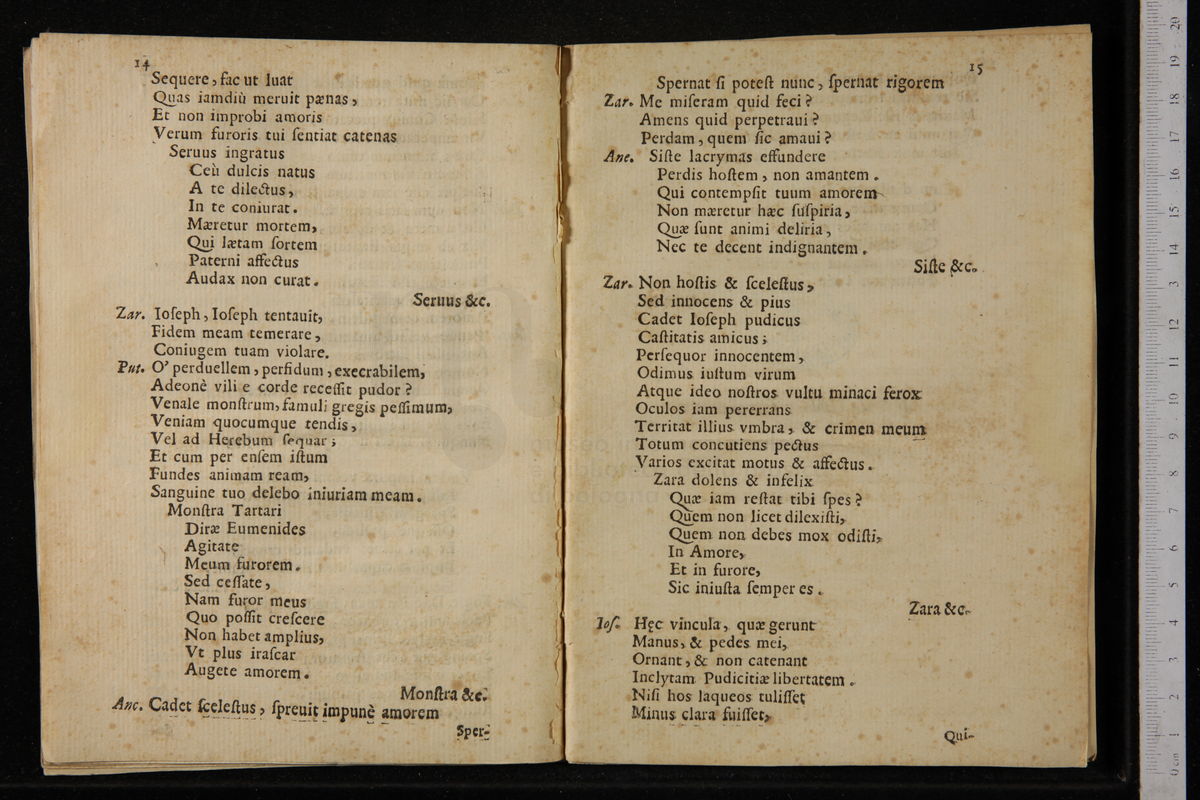 14
Sequere, fac ut luat
Quas iamdiù meruit pænas,
Et non improbi amoris
Verum furoris tui ſentiat catenas
Seruus ingratus
Ceù dulcis natus
A te dilectus,
In te coniurat.
Mæretur mortem,
Qui lætam ſortem
Paterni affectus
Audax non curat.
Seruus &c.
Zar. Ioſeph, Ioſeph tentauit,
Fidem meam temerare,
Coniugem tuam violare.
Put. O' perduellem, perfidum, execrabilem,
Adeonè vili e corde receſſit pudor?
Venale monſtrum, famuli gregis peſſimum,
Veniam quocumque tendis,
Vel ad Herebum ſequar;
Et cum per enſem iſtum
Fundes animam ream,
Sanguine tuo delebo iniuriam meam.
Monſtra Tartari
Diræ Eumenides
Agitate
Meum furorem.
Sed ceſſate,
Nam furor meus
Quo poſſit creſcere
Non habet amplius,
Vt plus iraſcar
Augete amorem.
Monſtra &c.
Anc. Cadet ſceleſtus, ſpreuit impunè amorem
Sper-
15
Spernat ſi poteſt nunc, ſpernat rigorem
Zar. Me miſeram quid feci?
Amens quid perpetraui?
Perdam, quem ſic amaui?
Anc. Siſte lacrymas effundere
Perdis hoſtem, non amantem.
Qui contempſit tuum amorem
Non mæretur hæc ſuſpiria,
Quæ ſunt animi deliria,
Nec te decent indignantem.
Siſte &c.
Zar. Non hoſtis & ſceleſtus,
Sed innocens & pius
Cadet Ioſeph pudicus
Caſtitatis amicus;
Perſequor innocentem,
Odimus iuſtum virum
Atque ideo noſtros vultu minaci ferox
Oculos iam pererrans
Territat illius vmbra, & crimen meum
Totum concutiens pectus
Varios excitat motus & affectus.
Zara dolens & infelix
Quæ iam reſtat tibi ſpes?
Quem non licet dilexiſti,
Quem non debes mox odiſti,
In Amore,
Et in furore,
Sic iniuſta ſemper es.
Zara &c.
Ioſ. Hęc vincula, quæ gerunt
Manus, & pedes mei,
Ornant, & non catenant
Inclytam Pudicitiæ libertatem.
Niſi hos laqueos tuliſſet
Minus clara fuiſſet,
Qui-